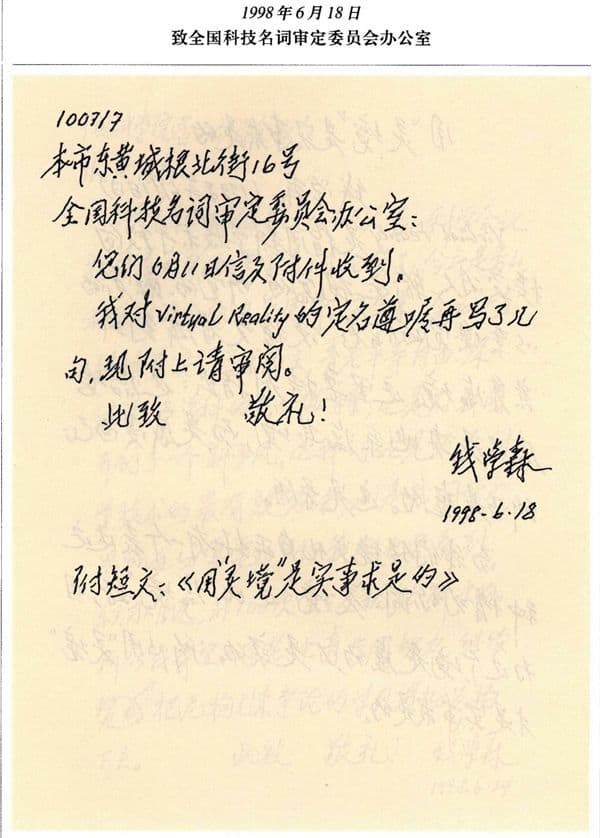 1998年6月18日
致全国科技名词审定委员会办公室
100717
本市东黄城根北街16号
全国科技名词审定委员会办公室：
您们6月11日信及附件收到。
我对Virtual Reality的定名遵嘱再写了几
句，现附上请审阅。
此致 敬礼！
钱学森
1998-6-18
附短文：《用“灵境”是实事求是的》